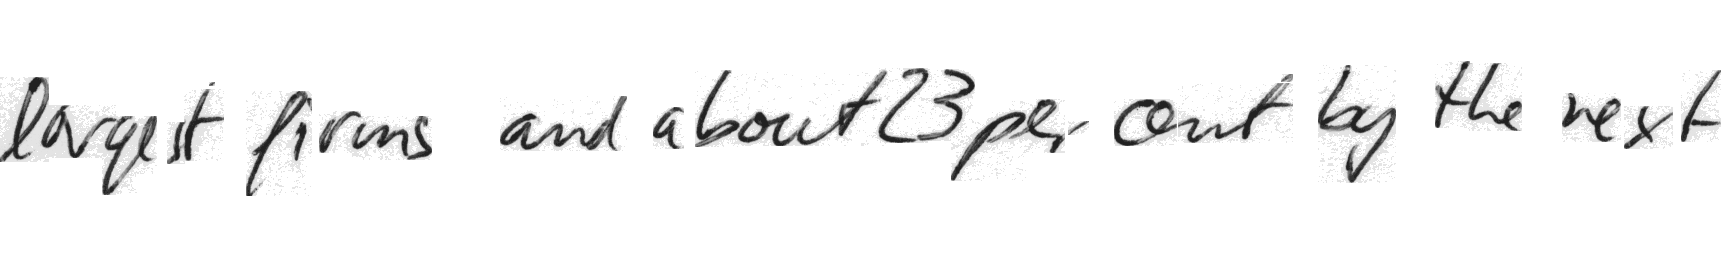 largest firms and about 23 per cent by the next